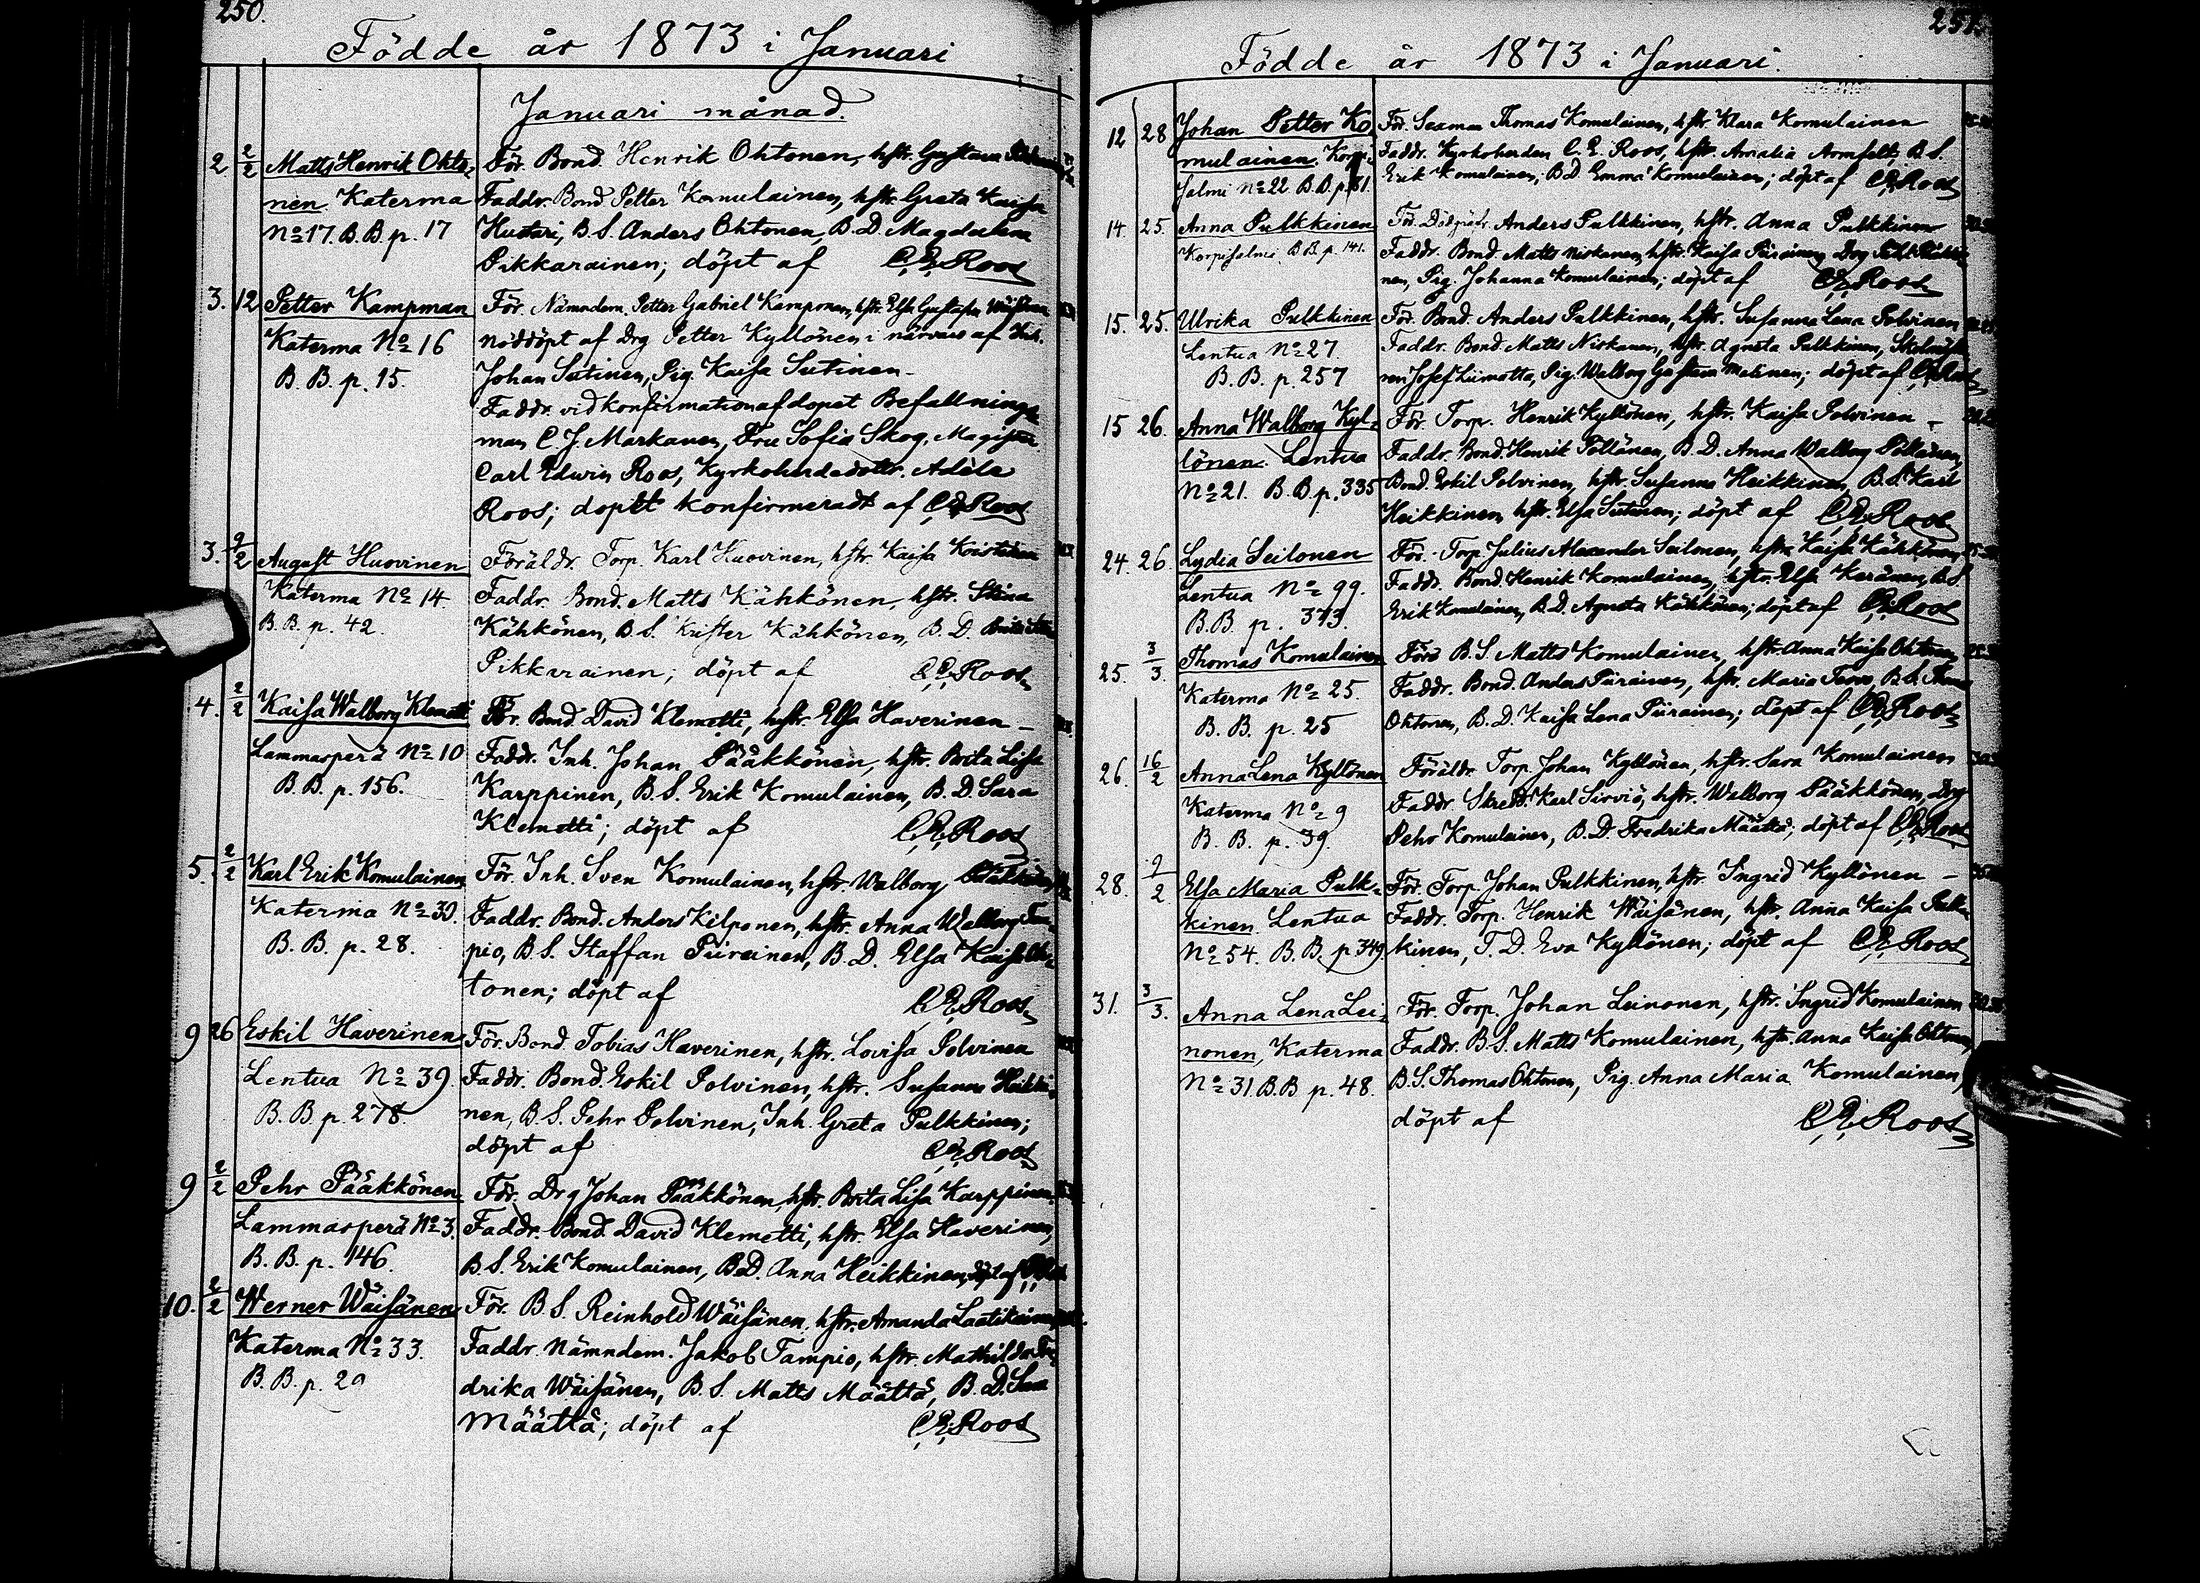 250.
Födde år 1873 i Januari
Januari månad.
2 2/2 Matts Henrik Ohto- För. Bond. Henrik Ohtonen, hstr. Gustava
nen. Katerma Faddr. Bond Petter Komulainen, hstr. Greta Kaisa
No 17. B.B. p. 17 Huotari, B.S. Anders Ohtonen, B.D. Magdalena
Pikkarainen; döpt af C.E. Roos
3. 12 Petter Kampman För. Nämndem. Petter Gabriel Kamponen, hstr. Elsa Gustafva Wäisänen
Katerma No 16 nöddöpt af Drg Petter Kyllönen i närvaro af Inh.
B.B. p. 15. Johan Sutinen, Pig. Kaisa Sutinen.
Faddr. vid konfirmation af dopet Befallnings-
man C.J. Markanen, Fru Sofia Skog, Magister
Carl Edwin Roos, Kyrkoherdedottr. Adèle
Roos; dopet konfirmeradt af C.E. Roos
3. 9/2 August Huovinen Föräldr. Torp. Karl Huovinen, hstr. Kaisa
Katerma No 14. Faddr. Bond. Matts Kähkönen, hstr. Stina
B.B. p. 42. Kähkönen, B.S. Krister Kähkönen, B.D.
Pikkarainen; döpt af C.E. Roos
4. 2/2 Kaisa Walborg Klemetti För. Bond. David Klemetti, hstr. Elsa Haverinen –
Lammasperä No 10 Faddr. Inh. Johan Pääkkönen, hstr. Brita Lisa
B.B. p. 156. Karppinen, B.S. Erik Komulainen, B.D. Sara
Klemetti; döpt af C.E. Roos
5. 2/2 Karl Erik Komulainen För. Inh. Sven Komulainen, hstr. Walborg
Katerma No 30. Faddr. Bond. Anders Kilponen, hstr. Anna Walborg Tam-
B.B. p. 28. pio, B.S. Staffan Piirainen, B.D. Elsa Kaisa Oh-
tonen; döpt af C.E. Roos
9 26 Eskil Haverinen För. Bond. Tobias Haverinen, hstr. Lovisa Polvinen
Lentua No 39 Faddr. Bond. Eskil Polvinen, hstr. Susanna Heikki-
B.B. p. 278. nen, B.S. Pehr Polvinen, Inh. Greta Pulkkinen;
döpt af C.E. Roos
9 2/2 Pehr Pääkkönen För. Drg Johan Pääkkönen, hstr. Brita Lisa Karppinen.
Lammasperä No 3. Faddr. Bond. David Klemetti, hstr. Elsa Haverinen,
B.B. p. 146. B.S. Erik Komulainen, B.D. Anna Heikkinen, döpt af
10. 2/2 Werner Wäisänen För. B.S. Reinhold Wäisänen, hstr. Amanda Laatikainen
Katerma No 33. Faddr. Nämndem. Jakob Tampio, hstr. Mathilda Fre-
B.B. p. 29 drika Wäisänen, B.S. Matts Määttä, B.D. Sara
Määttä; döpt af C.E. Roos
251.
Födde år 1873 i Januari.
12 28 Johan Petter Ko- För. Seaman Thomas Komulainen, hstr. Klara Komulainen
mulainen. Korpi- Faddr. Kyrkoherden C.E. Roos, hstr. Amalia Armfelt, B.S.
salmi No 22 B.B. p. 61. Erik Komulainen, B.D. Emma Komulainen; döpt af C.E. Roos
14. 25. Anna Pulkkinen För. Dödgräfv. Anders Pulkkinen, hstr. Anna Pulkkinen
Korpisalmi B.B. p. 141. Faddr. Bond. Matts Niskanen, hstr. Kaisa Piirainen, Drg
nen, Pig. Johanna Komulainen; döpt af C.E. Roos
15. 25. Ulrika Pulkkinen För. Bond. Anders Pulkkinen, hstr. Susanna Lena Polvinen
Lentua No 27. Faddr. Bond. Matts Niskanen, hstr. Agneta Pulkkinen,
B.B. p. 257 ren Josef Liimatta, Pig. Walborg Gustava Malinen; döpt af C.E. Roos
15 26. Anna Walborg Kyl- För. Torp. Henrik Kyllönen, hstr. Kaisa Polvinen –
lönen. Lentua Faddr. Bond. Henrik Pöllänen, B.D. Anna Walborg Pöllänen,
No 21. B.B. p. 335 Bond. Eskil Polvinen, hstr. Susanna Heikkinen, B.S. Karl
Heikkinen, hstr. Elsa Sutinen; döpt af C.E. Roos
24. 26 Lydia Seilonen För. Torp. Julius Alexander Seilonen, hstr. Kaisa Kähkönen
Lentua No 99. Faddr. Bond. Henrik Komulainen, hstr. Elsa Keränen, B.S.
B.B. p. 373. Erik Komulainen, B.D. Agneta Kähkönen; döpt af C.E. Roos
25. 3/3. Thomas Komulainen Förs B.S. Matts Komulainen, hstr. Anna Kaisa Ohtonen
Katerma No 25. Faddr. Bond. Anders Piirainen, hstr. Maria Turo, B.S. Thomas
B.B. p. 25 Ohtonen, B.D. Kaisa Lena Piirainen; döpt af C.E. Roos
26. 16/2 Anna Lena Kyllönen Föräldr. Torp. Johan Kyllönen, hstr. Sara Komulainen
Katerma No 9 Faddr. Skredd. Karl Sirviö, hstr. Walborg Pääkkönen, Drg
B.B. p. 39. Pehr Komulainen, B.D. Fredrika Määttä; döpt af C.E. Roos
28. 9/2 Elsa Maria Pulk- För. Torp. Johan Pulkkinen, hstr. Ingrid Kyllönen –
kinen. Lentua Faddr. Torp. Henrik Wäisänen, hstr. Anna Kaisa Pulk-
No 54. B.B. p 349. kinen, T.D. Eva Kyllönen; döpt af C.E. Roos
31. 3/3. Anna Lena Lei- För. Torp. Johan Leinonen, hstr. Ingrid Komulainen
nonen, Katerma Faddr. B.S. Matts Komulainen, hstr. Anna Kaisa Ohtonen,
No 31 B.B p. 48. B.S. Thomas Ohtonen, Pig. Anna Maria Komulainen,
döpt af C.E. Roos